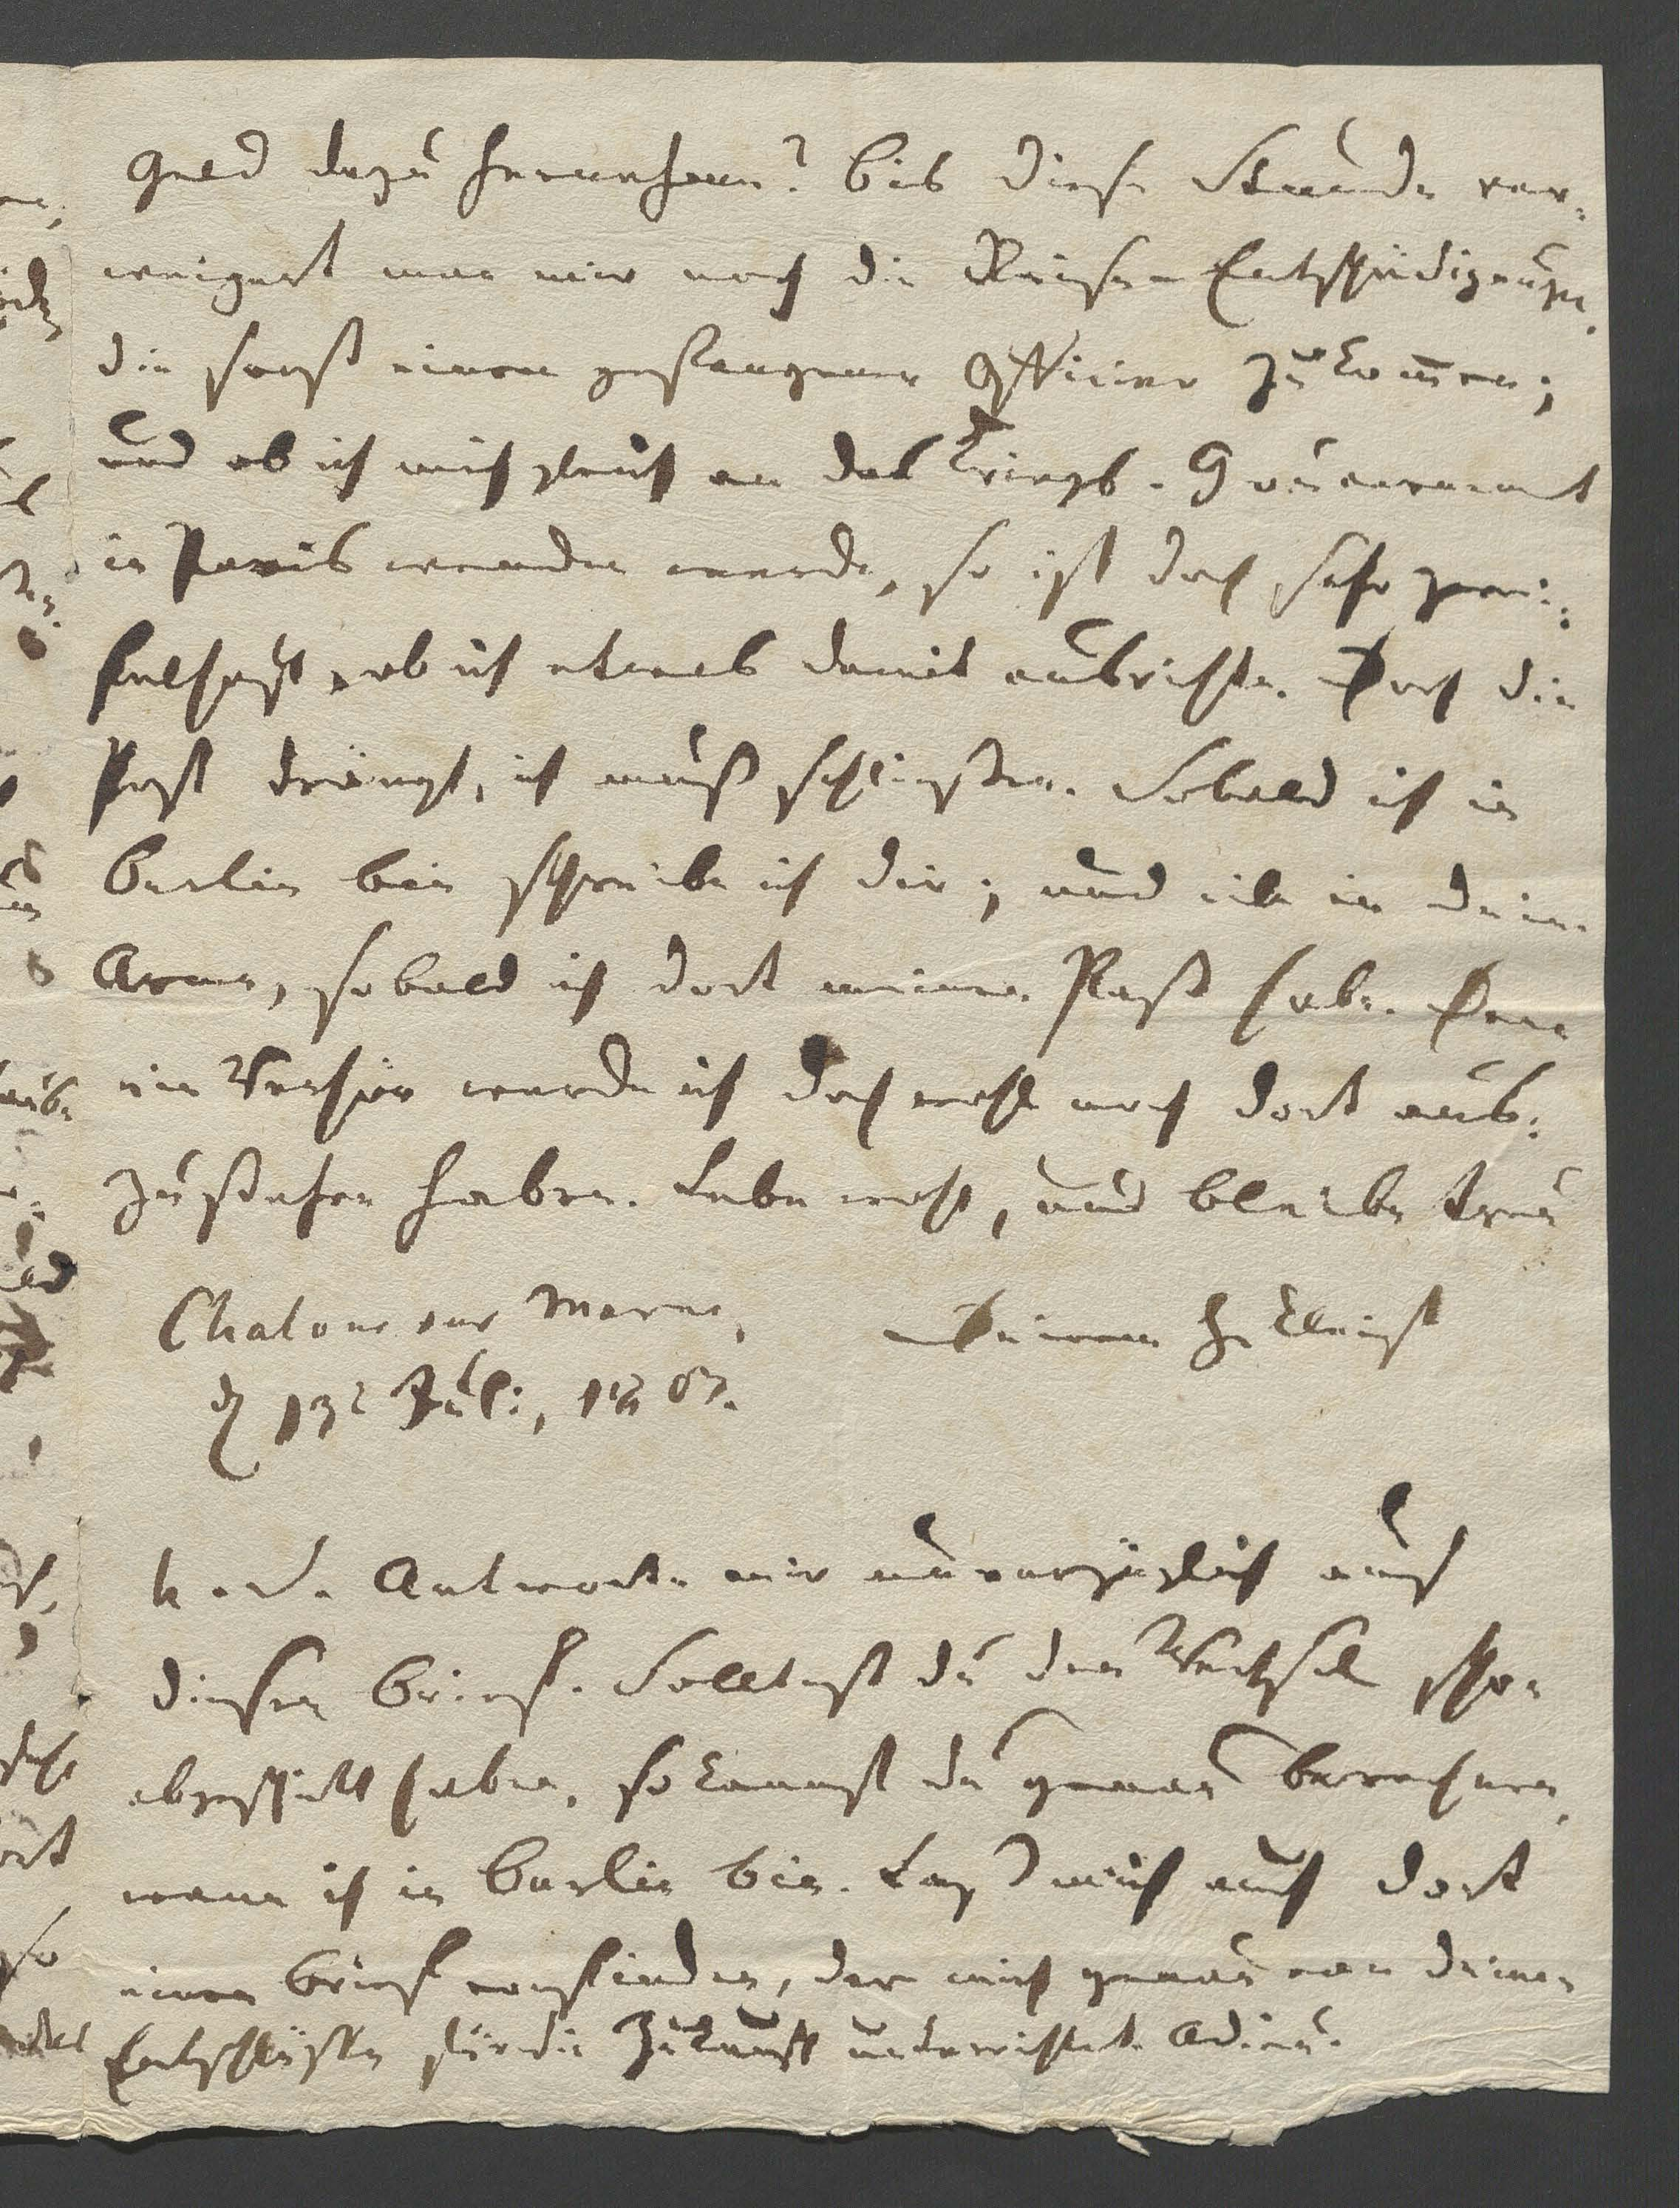 Geld dazu hernehmen? Bis diese Stunde ver-
weigert man mir noch die Reise-Entschädigung,
die sonst einem gefangenen Officier zukom̅en;
und ob ich mich gleich an das Kriegs-Gouvernement
in Paris wenden werde, so ist doch sehr zwei-
felhaft, ob ich etwas damit ausrichte. Doch die
Post drängt, ich muß schließen. Sobald ich in
Berlin bin schreibe ich dir; und eile in deine
Arme, sobald ich dort meinen Paß habe. Denn
ein Verhör werde ich doch wohl noch dort aus-
zustehen haben. Lebe wohl, und bleibe treu
Chalons sur Marne, Deinem H. Kleist
d 13t Juli, 1807.
N. S. Antworte mir unverzüglich auf
diesen Brief. Solltest du den Wechsel schon
abgeschickt haben, so kannst du genau berechnen,
wann ich in Berlin bin. Laß mich auch dort
einen Brief vorfinden, der mich genau von deinen
Entschlüssen für die Zukunft unterrichtet. Adieu.